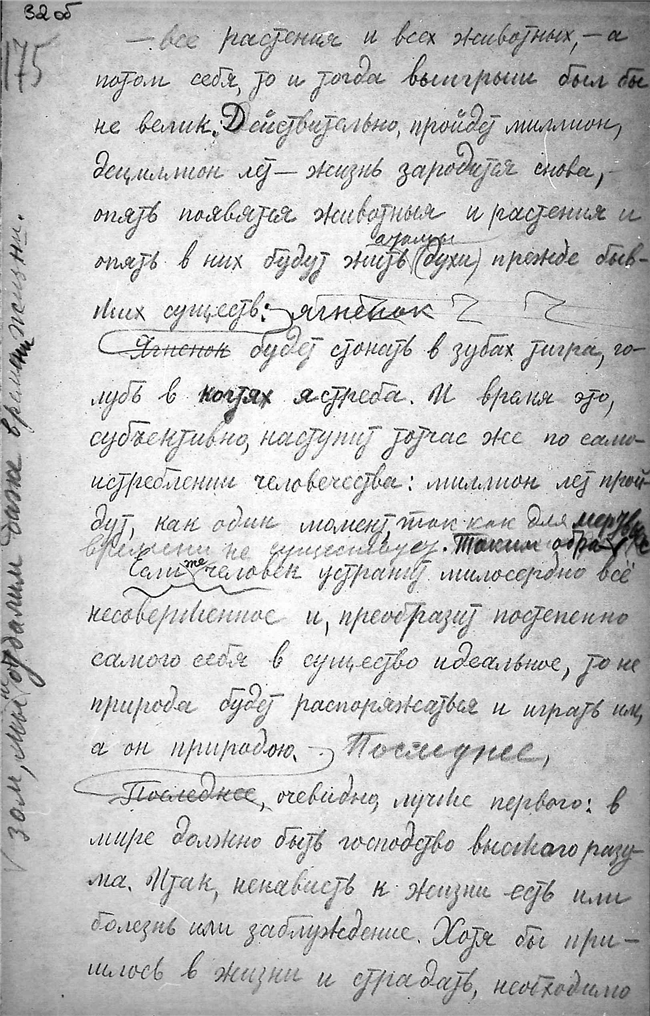 32 об
175
— все растения и всех животных, — а
потом себя, то и тогда выигрыш был бы
не велик. Действительно, пройдет миллион,
дециллион лет — жизнь зародится снова, —
опять появятся животныя и растения и
атомы
опять в них будут жить (духи) прежде быв-
ших существ: ягненок
Ягненок будет стонать в зубах тигра, го-
лубь в когтях ястреба. И время это,
субъективно, наступит тотчас же по само-
истреблении человечества: миллион лет прой-
дут, как один момент, так как для мертвых
времени не существует. Таким обра-
Если же человек устранит милосердно всё
несовершенное и, преобразит постепенно
самого себя в существо идеальное, то не
природа будет распоряжаться и играть им,
а он природою. Последнее,
Последнее, очевидно, лучше первого: в
мире должно быть господство высшаго разу-
ма. Итак, ненависть к жизни есть или
болезнь или заблуждение. Хотя бы при-
шлось в жизни и страдать, необходимо
зом, мы не отдалим даже времени жизни.